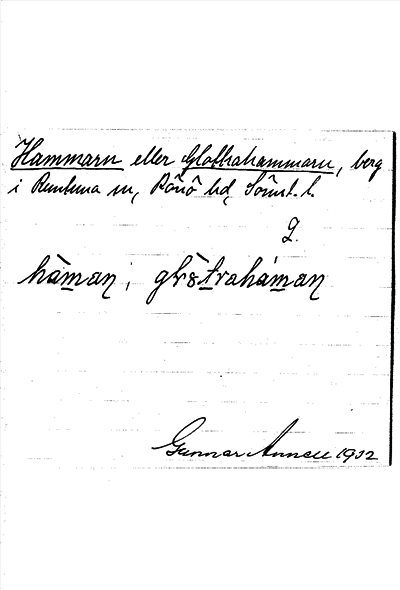 Hammarn eller Glottrahammarn, berg
i Runtuna sn, Rönö hd, Söml. l.
2.
hàman, glŏtrahàman
Gunnar Annell 1932